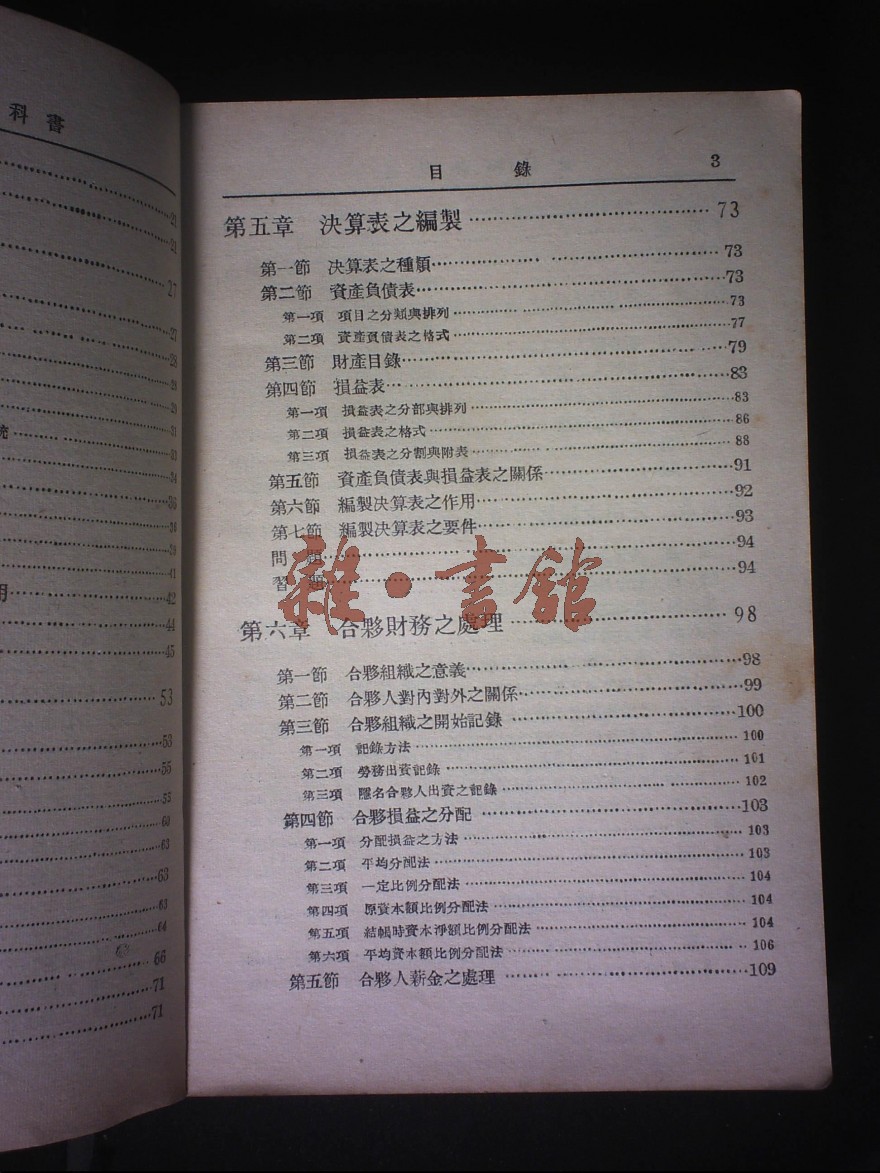 科書
21
21
27
27
28
28
29
31
統 33
34
36
38
39
41
用 42
44
45
53
53
55
55
60
63
63
63
64
66
71
71
目 錄 3
第五章 決算表之編製 73
第一節 決算表之種類 73
第二節 資產負債表 73
第一項 項目之分類與排列 73
第二項 資產負債表之格式 77
第三節 財產目錄 79
第四節 損益表 83
第一項 損益表之分部與排列 83
第二項 損益表之格式 86
第三項 損益表之分割與附表 88
第五節 資產負債表與損益表之關係 91
第六節 編製決算表之作用 92
第七節 編製決算表之要件 93
問題 94
習題 94
雜·書館
第六章 合夥財務之處理 98
第一節 合夥組織之意義 98
第二節 合夥人對內對外之關係 99
第三節 合夥組織之開始記錄 100
第一項 記錄方法 100
第二項 勞務出資記錄 101
第三項 隱名合夥人出資之記錄 102
第四節 合夥損益之分配 103
第一項 分配損益之方法 103
第二項 平均分配法 103
第三項 一定比例分配法 104
第四項 原資本額比例分配法 104
第五項 結帳時資本淨額比例分配法 104
第六項 平均資本額比例分配法 106
第五節 合夥人薪金之處理 109